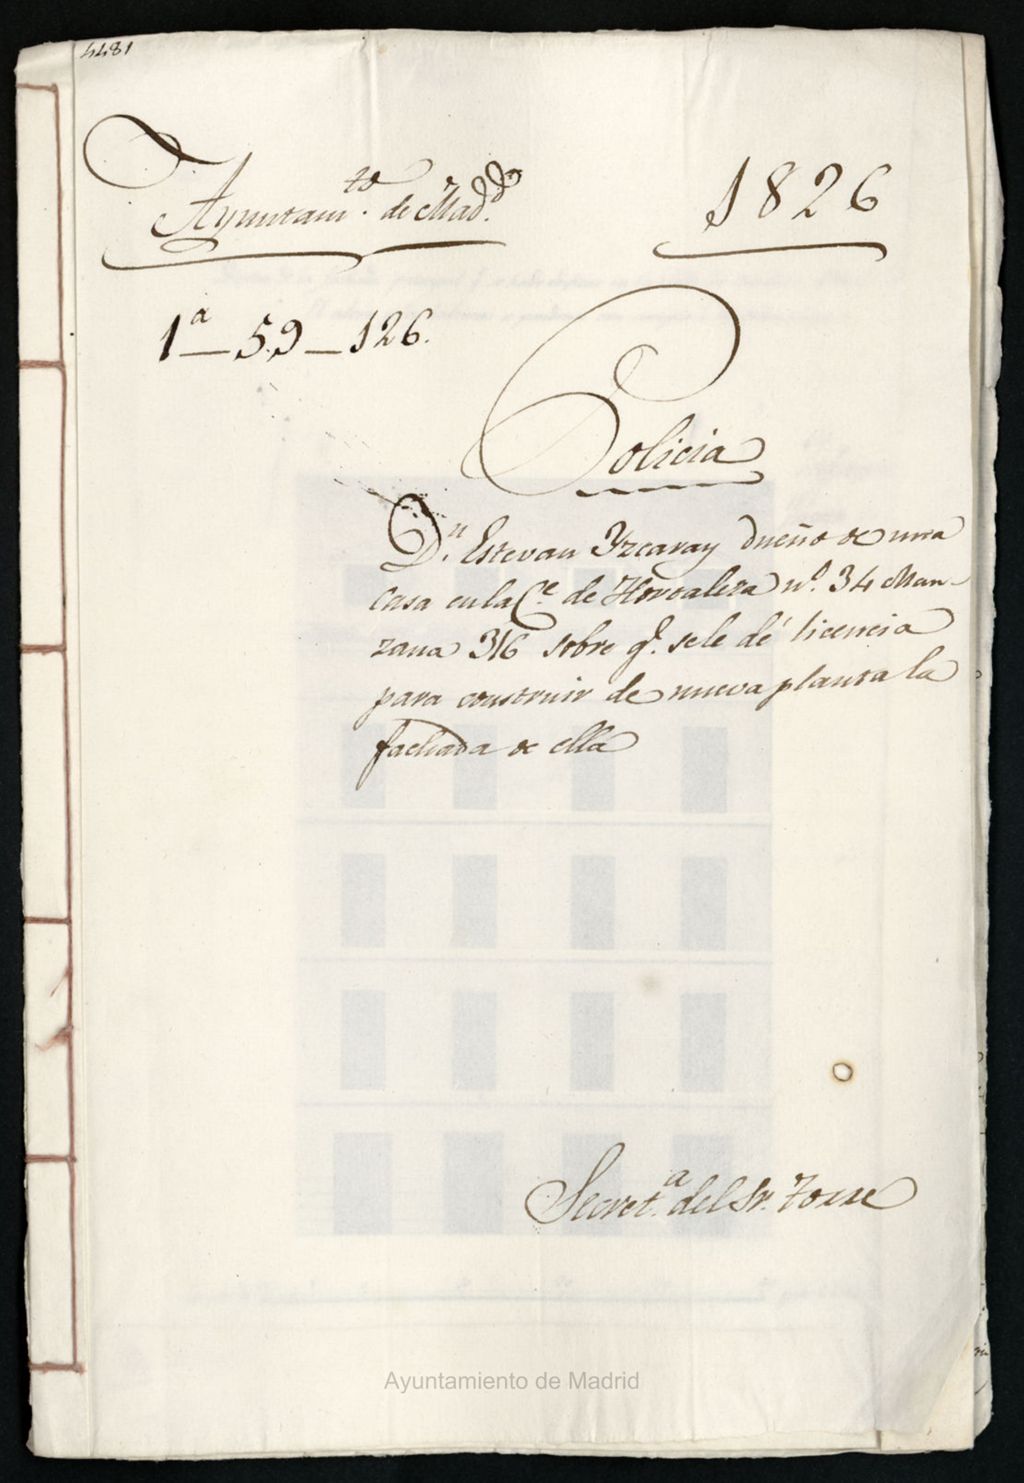 4481
Ayuntam.to de Madd.
1826
1a_59_126.
Policia
Dn. Estevan Yzcaray dueño de una
Casa en la Ce. de Hortaleza no. 34 Man-
zana 316 sobre q.e sele dé licencia
para construir de nueva planta la
fachada de ella
Secret.a del Sr.
Ayuntamiento de Madrid